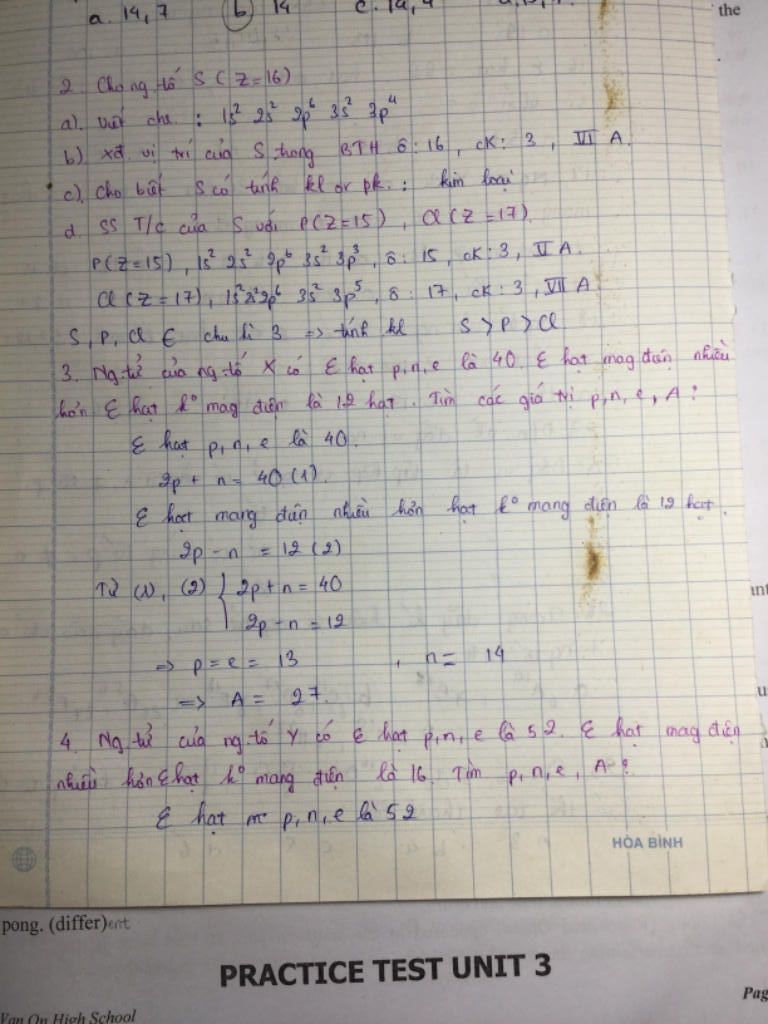 a. 14,7 b 14 c. 14,4
the
2. Cho ng tố S (Z=16)
a). Viết che : 1s² 2s² 2p⁶ 3s² 3p⁴
b). xđ vị trí của S trong BTH ô: 16, cK: 3, VI A.
c). Cho biết S có tính kl or pk. : kim loại
d SS T/c của S với P(Z=15), Cl(Z=17).
P(Z=15), 1s² 2s² 2p⁶ 3s² 3p³, ô: 15, cK: 3, V A.
Cl(Z=17), 1s²2s²2p⁶ 3s² 3p⁵, ô: 17, cK: 3, VII A
S, P, Cl ∈ chu kì 3 => tính kl S > P > Cl
3. Ng.tử của ng.tố X có Σ hạt p,n,e là 40. Σ hạt mag điện nhiều
hơn Σ hạt k⁰ mag điện là 12 hạt. Tìm các giá trị p,n,e, A?
Σ hạt p,n,e là 40.
2p + n = 40 (1).
Σ hạt mang điện nhiều hơn hạt k⁰ mang điện là 12 hạt.
2p - n = 12 (2)
Từ (1), (2) { 2p + n = 40
2p - n = 12
=> p = e = 13 , n = 14
=> A = 27.
4. Ng.tử của ng.tố Y có Σ hạt p,n,e là 52. Σ hạt mag điện
nhiều hơn Σ hạt k⁰ mang điện là 16. Tìm p,n,e, A?
Σ hạt p,n,e là 52
HÒA BÌNH
pong. (differ)ent
PRACTICE TEST UNIT 3
Pag
Van On High School